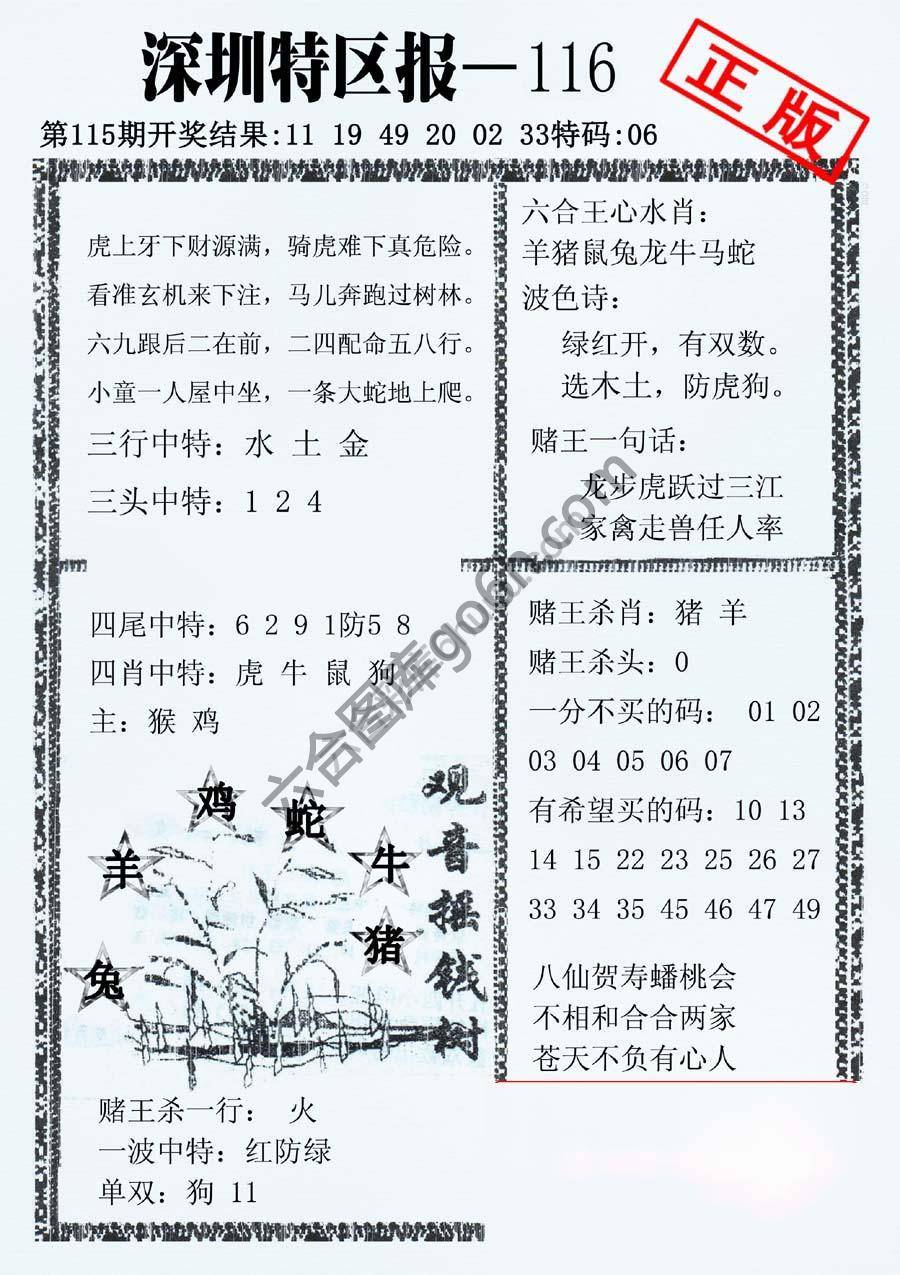 深圳特区报—116
正版
第115期开奖结果:11 19 49 20 02 33特码:06
虎上牙下财源满，骑虎难下真危险。
看准玄机来下注，马儿奔跑过树林。
六九跟后二在前，二四配命五八行。
小童一人屋中坐，一条大蛇地上爬。
三行中特：水 土 金
三头中特：1 2 4
六合王心水肖：
羊猪鼠兔龙牛马蛇
波色诗：
绿红开，有双数。
选木土，防虎狗。
赌王一句话：
龙步虎跃过三江
家禽走兽任人率
四尾中特：6 2 9 1防5 8
四肖中特：虎 牛 鼠 狗
主：猴 鸡
观音摇钱树
鸡
蛇
羊
牛
猪
兔
赌王杀一行： 火
一波中特：红防绿
单双：狗 11
赌王杀肖：猪 羊
赌王杀头：0
一分不买的码： 01 02
03 04 05 06 07
有希望买的码：10 13
14 15 22 23 25 26 27
33 34 35 45 46 47 49
八仙贺寿蟠桃会
不相和合合两家
苍天不负有心人
六合图库go6h.com